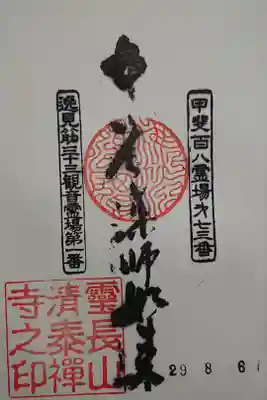 甲斐百八霊場才七三番
薬師如来
逸見筋三十三観音霊場第一番
靈長山
清泰禪
寺之印
29 8 6